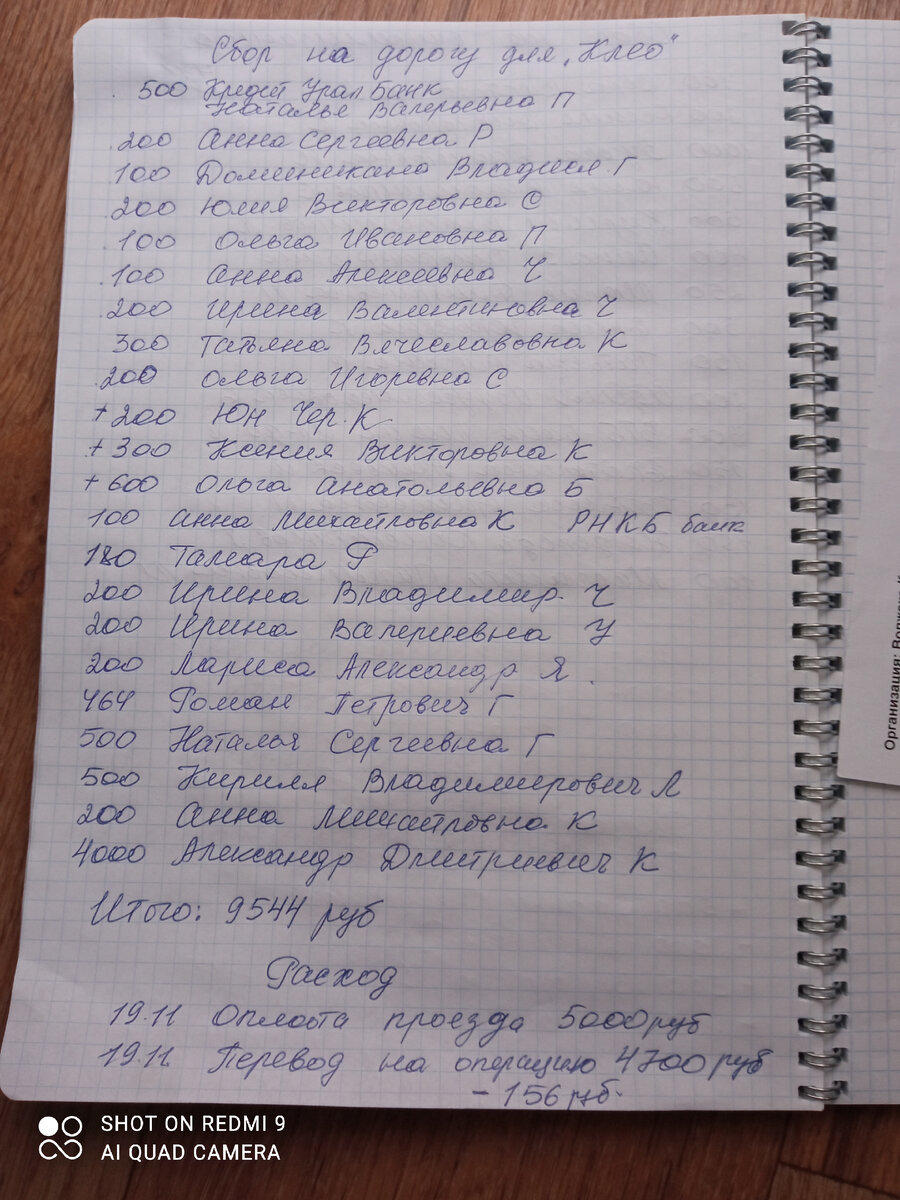 Сбор на дорогу для „Клео"
500 Кредит Урал Банк
Наталье Валерьевна П
200 Анна Сергеевна Р
100 Доминикана Владими Г
200 Юлия Викторовна С
100 Ольга Ивановна П
100 Анна Алексеевна Ч
200 Ирина Валентиновна Ч
300 Татьяна Вячеславовна К
200 Ольга Игоревна С
+200 Юн Чер. К
+300 Ксения Викторовна К
+600 Ольга Анатольевна Б
100 Анна Михайловна К РНКБ банк
180 Тамара Р
200 Ирина Владимир. Ч
200 Ирина Валериевна У
200 Лариса Александр Я.
464 Роман Петрович Г
500 Наталья Сергеевна Г
500 Кирилл Владимирович Л
200 Анна Михайловна К
4000 Александр Дмитриевич К
Итого: 9544 руб
Расход
19.11 Оплата проезда 5000 руб
19.11 Перевод на операцию 4700 руб
- 156 руб.
Организация:
SHOT ON REDMI 9
AI QUAD CAMERA